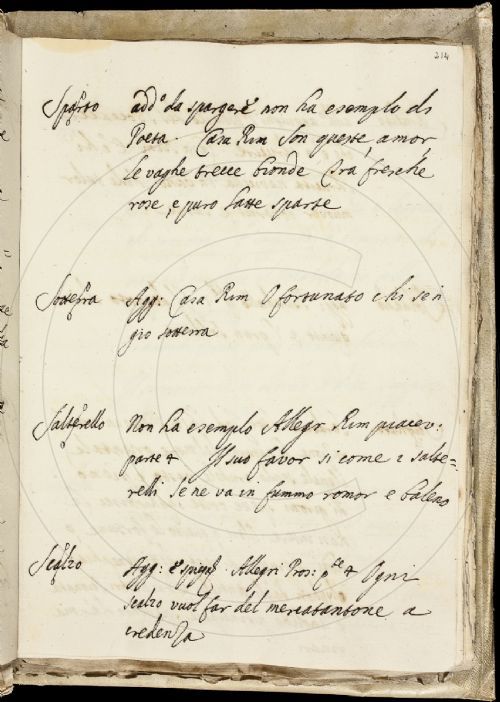 214
Sparto add.o da spargere non ha esemplo di
Poeta. Casa Rim Son queste, amor,
le vaghe trecce bionde Tra fresche
rose, e puro latte sparte
Sotterra Agg: Casa Rim O fortunato chi sen
gio sotterra
Salterello Non ha esemplo Allegr Rim piacev:
parte 4 Il suo favor si come i salte=
relli se ne va in fummo romor e baleno
Scalzo Agg: Allegri Pros: p.te 4 Ogni
scalzo vuol far del mercatantone a
credenza